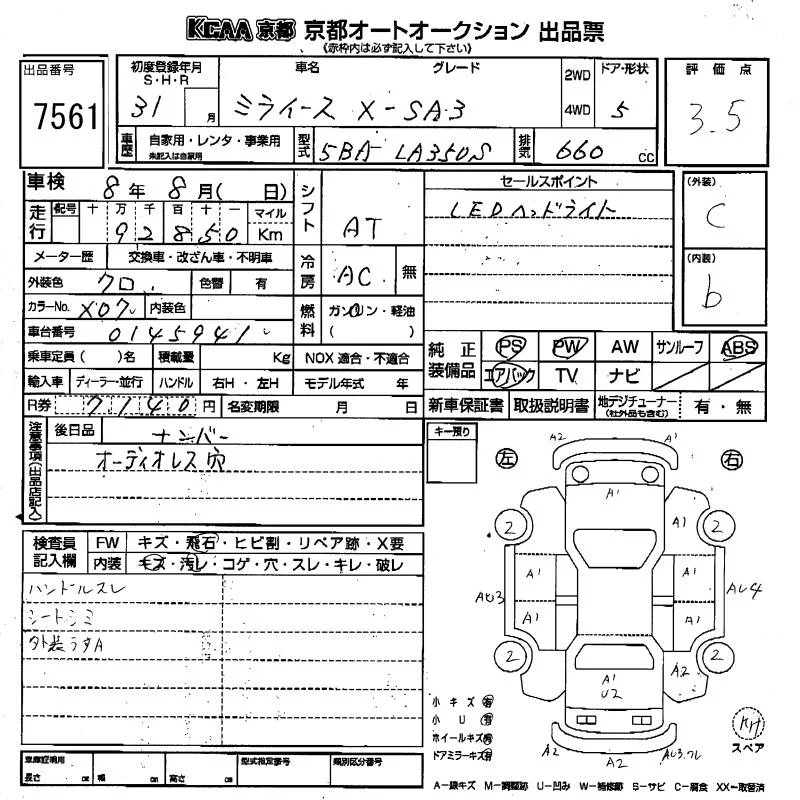 KCAA 京都 京都オートオークション 出品票
《赤枠内は必ず記入して下さい》
出品番号
7561
初度登録年月
S・H・R
31 月
車名 グレード
ミライース X-SA3
2WD
4WD
ドア・形状
5
評価点
3.5
車歴
自家用・レンタ・事業用
未記入は自家用
型式
5BA-LA350S
排気
660 CC
車検
8年 8月( 日)
走行
記号 十 万 千 百 十 一 マイル
92850 Km
メーター歴 交換車・改ざん車・不明車
外装色 クロ 色替 有
カラーNo. X07 内装色
車台番号 0145941
乗車定員( )名 積載量 Kg
輸入車 ディーラー・並行 ハンドル 右H・左H
R券 7140円 名変期限 月 日
シフト
AT
冷房
AC 無
燃料
ガソリン・軽油
( )
NOX 適合・不適合
モデル年式 年
セールスポイント
LEDヘッドライト
(外装)
C
(内装)
b
純正装備品
PS PW AW サンルーフ ABS
エアバック TV ナビ
新車保証書 取扱説明書 地デジチューナー
(社外品も含む)
有・無
注意事項(出品店記入)
後日品 ナンバー
オーディオレス穴
検査員記入欄
FW キズ・飛石・ヒビ割・リペア跡・X要
内装 キズ・汚レ・コゲ・穴・スレ・キレ・破レ
ハンドルスレ
シートシミ
外装うすA
キー預り
左
右
A2 A1
A1
2 A1 2
A1 A1
AU3 AU4
A1 A1
2 A2 2
A1
U2
A2 A2 AU3.ワレ
小キズ 有
小U 有
ホイールキズ 有
ドアミラーキズ 有
スペア
車庫証明用
長さ cm 幅 cm 高さ cm
型式指定番号
類別区分番号
A―線キズ M―調整跡 U―凹み W―補修跡 S―サビ C―腐食 XX―取替済